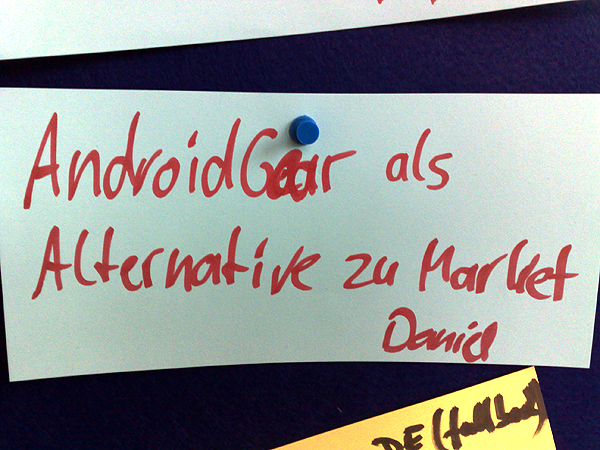 AndroidGear als
Alternative zu Market
Daniel
DE (